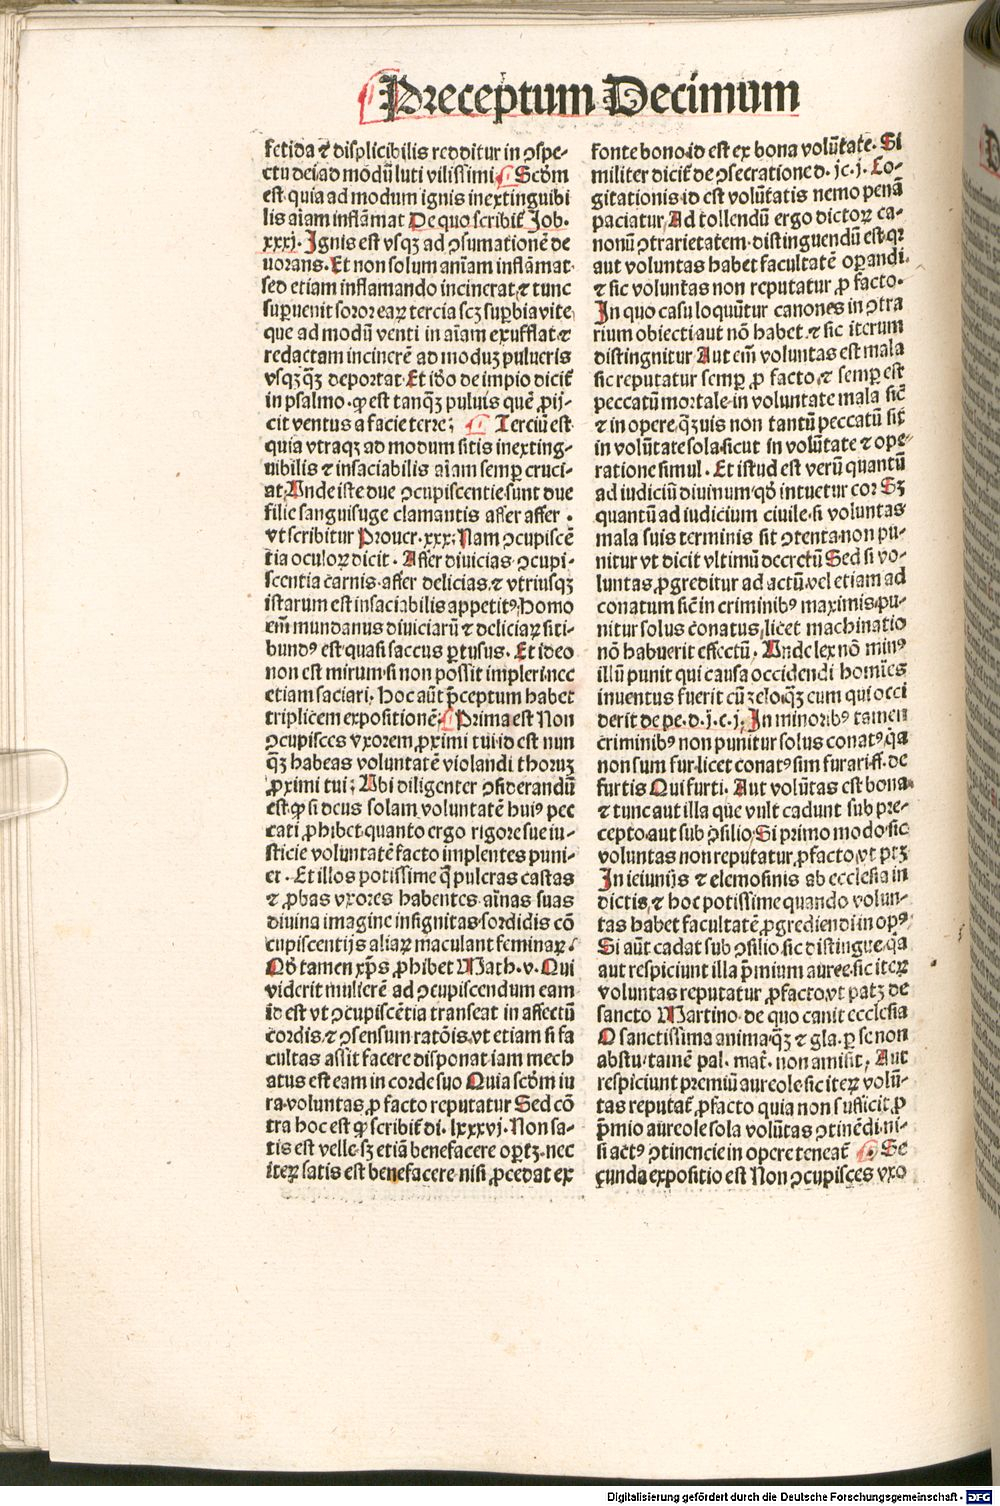 Preceptum Decimum
fetida ⁊ displicibilis redditur in ꝯspe-
ctu dei ad modū luti vilissimi Scd̄m
est. quia ad modum ignis inextinguibi
lis aīam inflāmat De quo scribit̄ Job.
xxxj. Ignis est vsqꝫ ad ꝯsumationē de
uorans. Et non solum anīam inflāmat.
sed etiam inflamando incinerat, ⁊ tunc
suꝑuenit soror eaꝝ tercia scꝫ suꝑbia vite
que ad modū venti in aīam exufflat. ⁊
redactam in cinerē ad moduꝫ pulueris
vsqꝫqꝫ deportat. Et iđo de impio dicit̄
in psalmo. ꝙ est tanqꝫ puluis quē ꝓij-
cit ventus a facie terre; Terciū est
quia vtraqꝫ ad modum sitis inexting-
uibilis ⁊ insaciabilis aīam semꝑ cruci-
at. Unde iste due ꝯcupiscentie sunt due
filie sanguisuge clamantis affer affer .
vt scribitur Prouer. xxx; Nam ꝯcupiscē
tia oculoꝝ dicit . Affer diuicias. ꝯcupi-
scentia carnis. affer delicias. ⁊ vtriusqꝫ
istarum est insaciabilis appetitꝰ. Homo
em̄ mundanus diuiciarū ⁊ deliciaꝝ siti-
bundꝰ est quasi saccus ꝑtusus. Et ideo
non est mirum. si non possit impleri. nec
etiam saciari. Hoc aūt p̄ceptum habet
triplicem expositionē; Prima est Non
ꝯcupisces vxorem ꝓximi tui. id est nun
qꝫ habeas voluntatē violandi thoruꝫ
ꝓximi tui; Ubi diligenter ꝯsiderandū
est. ꝙ si deus solam voluntatē huiꝰ pec
cati ꝓhibet. quanto ergo rigore sue iu-
sticie voluntatē facto implentes puni-
et . Et illos potissime q̄ pulcras castas
⁊ ꝓbas vxores habentes. aīnas suas
diuina imagine insignitas. sordidis cō
cupiscentijs aliaꝝ maculant feminaꝝ.
Qđ tamen xp̄s ꝓhibet Math. v. Qui
viderit mulierē ad ꝯcupiscendum eam
id est vt ꝯcupiscētia transeat in affectū
cordis. ⁊ ꝯsensum ratōis. vt etiam si fa
cultas assit facere disponat. iam mech
atus est eam in corde suo Quia scd̄m iu
ra. voluntas ꝓ facto reputatur Sed cō
tra hoc est ꝙ scribit̄ di. lxxxvj. Non sa-
tis est velle. sꝫ etiā benefacere oꝑtꝫ. nec
iteꝝ satis est benefacere. nisi ꝓcedat ex
fonte bono. id est ex bona volūtate. Si
militer dicit̄ de ꝯsecratione d. jc. j. Co-
gitationis id est volūtatis nemo penā
paciatur. Ad tollendū ergo dictoꝝ ca-
nonū ꝯtrarietatem. distinguendū est. qꝛ
aut voluntas habet facultatē oꝑandi.
⁊ sic voluntas non reputatur ꝓ facto.
In quo casu loquūtur canones in ꝯtra
rium obiecti. aut nō habet. ⁊ sic iterum
distingnitur Aut em̄ voluntas est mala
sic reputatur semꝑ ꝓ facto. ⁊ semꝑ est
peccatū mortale. in voluntate mala sic̄
⁊ in opere. qꝫuis non tantū peccatū sit̄
in volūtate sola. sicut in volūtate ⁊ ope-
ratione simul . Et istud est verū quantū
ad iudiciū diuinum. qđ intuetur cor Sꝫ
quantū ad iudicium ciuile. si voluntas
mala suis terminis sit ꝯtenta. non pu-
nitur vt dicit vltimū decretū Sed si vo-
luntas ꝓgreditur ad actū. vel etiam ad
conatum sic̄ in criminibꝰ maximis. pu-
nitur solus conatus, licet machinatio
nō habuerit effectū . Unde lex nō minꝰ
illū punit qui causa occidendi homines
inuentus fuerit cū zelo. qꝫ cum qui occi
derit de pe. d. j. c. j. In minoribꝰ tamen
criminibꝰ non punitur solus conatꝰ. qa
non sum fur. licet conatꝰ sim furari. ff. de
furtis Qui furti. Aut volūtas est bona
⁊ tunc aut illa que vult cadunt sub pre-
cepto. aut sub ꝯsilio. Si primo modo. sic
voluntas non reputatur ꝓ facto, vt ptꝫ
In ieiunijs ⁊ elemosinis ab ecclesia in
dictis, ⁊ hoc potissime quando volun-
tas habet facultatē ꝓgrediendi in opꝰ.
Si aūt cadat sub ꝯsilio. sic distingue. qa
aut respiciunt illa p̄mium auree. sic iteꝝ
voluntas reputatur ꝓ facto. vt patꝫ de
sancto Martino. de quo canit ecclesia
O sanctissima anima. qꝫ ⁊ gla. ꝑse non
abstu. tamē pal. mat̄. non amisit, Aut
respiciunt premiū aureole. sic iteꝝ volū-
tas reputat̄ ꝓ facto quia non sufficit ꝓ
p̄mio aureole sola volūtas ꝯtinēdi. ni-
si actꝰ ꝯtinencie in opere teneat̄ . Se
cunda expositio est Non ꝯcupisces vxo
Digitalisierung gefördert durch die Deutsche Forschungsgemeinschaft - DFG